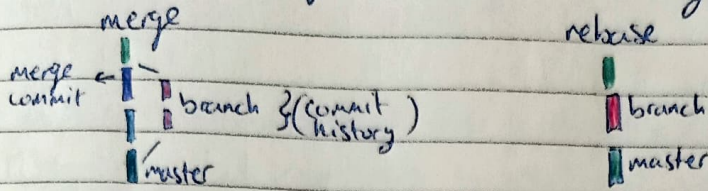 merge
rebase
merge
commit
branch }(commit
history)
master
branch
master